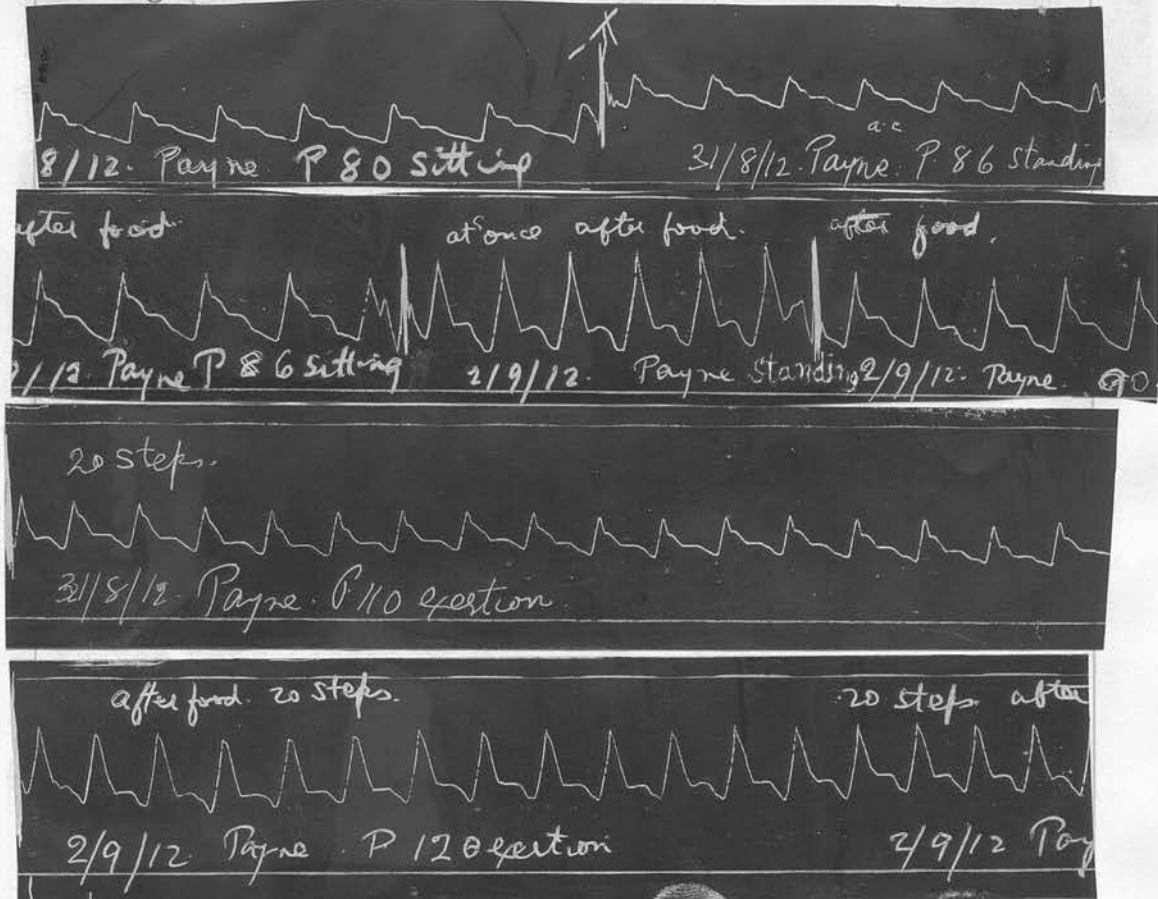 8/12. Payne P 80 Sitting
a.c
31/8/12. Payne. P 86 Standing
after food.
at once after food.
after food.
/12. Payne P 86 sitting
2/9/12. Payne Standing
2/9/12. Payne.
20 steps.
31/8/12. Payne. P 110 exertion.
after food. 20 steps.
20 steps after
2/9/12 Payne. P 120 exertion
2/9/12 Pay